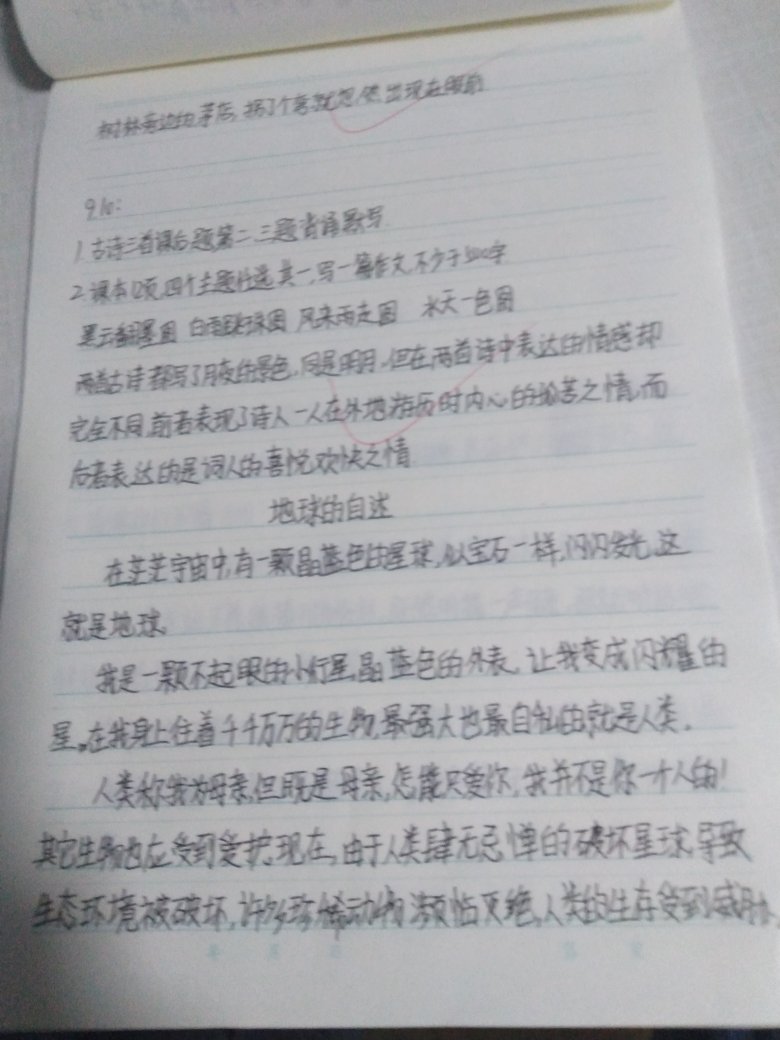 树林旁边的茅店,拐了个弯就忽然出现在眼前
9.10:
1.古诗三首课后题,第二、三题背诵默写
2.课本12页,四个主题任选其一,写一篇作文,不少于500字
黑云翻墨图 白雨跳珠图 风来雨走图 水天一色图
两首古诗都写了月夜的景色,同是明月,但在两首诗中表达的情感却
完全不同,前者表现了诗人一人在外地游历时内心的愁苦之情,而
后者表达的是词人的喜悦欢快之情
地球的自述
在茫茫宇宙中,有一颗晶蓝色的星球,似宝石一样,闪闪发光,这
就是地球。
我是一颗不起眼的小行星,晶蓝色的外表,让我变成闪耀的
星。在我身上住着千千万万的生物,最强大也最自私的就是人类。
人类称我为母亲,但既是母亲,怎能只爱你,我并不是你一个人的!
其它生物也应受到爱护。现在,由于人类肆无忌惮的破坏星球,导致
生态环境被破坏,许多珍稀动物濒临灭绝,人类的生存受到威胁,